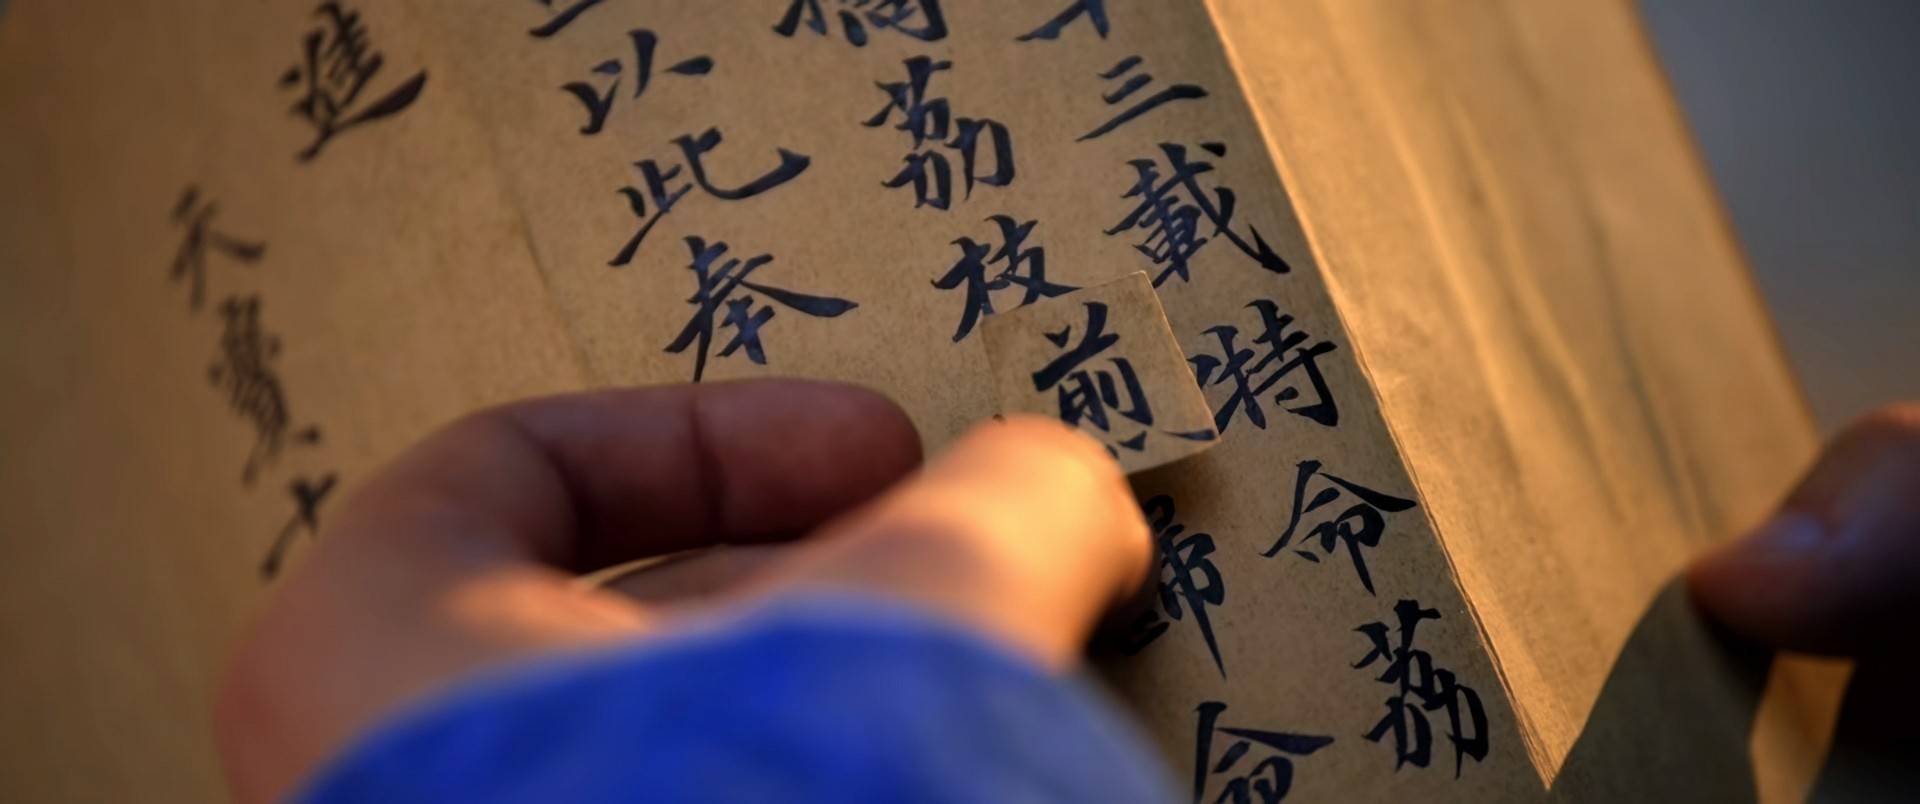 三載特命荔
荔枝煎歸命
以此奉
進
天寶十